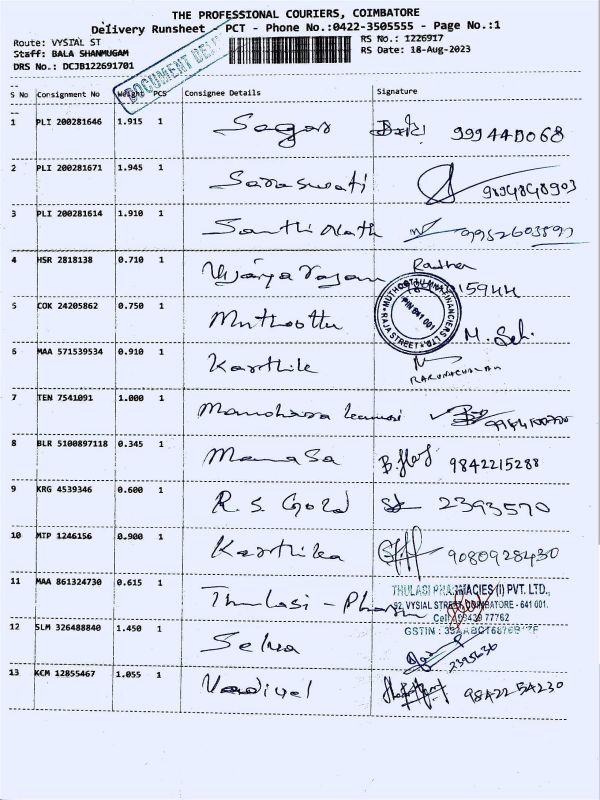 THE PROFESSIONAL COURIERS, COIMBATORE
Delivery Runsheet - PCT - Phone No.:0422-3505555 - Page No.:1
Route: VYSIAL ST
RS No.: 1226917
Staff: BALA SHANMUGAM
RS Date: 18-Aug-2023
DRS No.: DCJB122691701
DOCUMENT
S No Consignment No Weight PCS Consignee Details Signature
1 PLI 200281646 1.915 1 Sagar
2 PLI 200281671 1.945 1 Saraswati 9894848903
3 PLI 200281614 1.910 1 Santhi Nath
4 HSR 2818138 0.710 1 Vijaya rajan
5 COK 24205862 0.750 1 Muthoottu M. Sel.
MUTHOOTTU MINI FINANCIERS LTD
RAJA STREET
PIN 641 001
6 MAA 571539534 0.910 1 Karthik
7 TEN 7541091 1.000 1 Manohara
8 BLR 5100897118 0.345 1 ManaSa 9842215288
9 KRG 4539346 0.600 1 R. S. Gold 2393570
10 MTP 1246156 0.900 1 Karthika 9080928430
11 MAA 861324730 0.615 1 Thulasi - Pharm
THULASI PHARMACIES (I) PVT. LTD.,
92, VYSIAL STREET, COIMBATORE - 641 001.
Cell: 77762
GSTIN :
12 SLM 326488840 1.450 1 Selva 2395630
13 KCM 12855467 1.055 1 Vadivel 9842254230